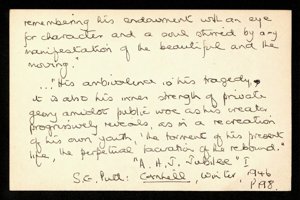 remembering his endowment with an eye
for character and a soul stirred by any
manifestation of the beautiful and the
moving."
... "His ambivalence is his tragedy,
it is also his inner strength of private
glory amidst public woe as his creator
progressively reveals, as in a recreation
of his own youth, 'the torment of his present
life, the perpetual laceration of the rebound."
"A. H. J. Jubilee" I
S.G. Putt: Cornhill, Winter, 1946
P.198.